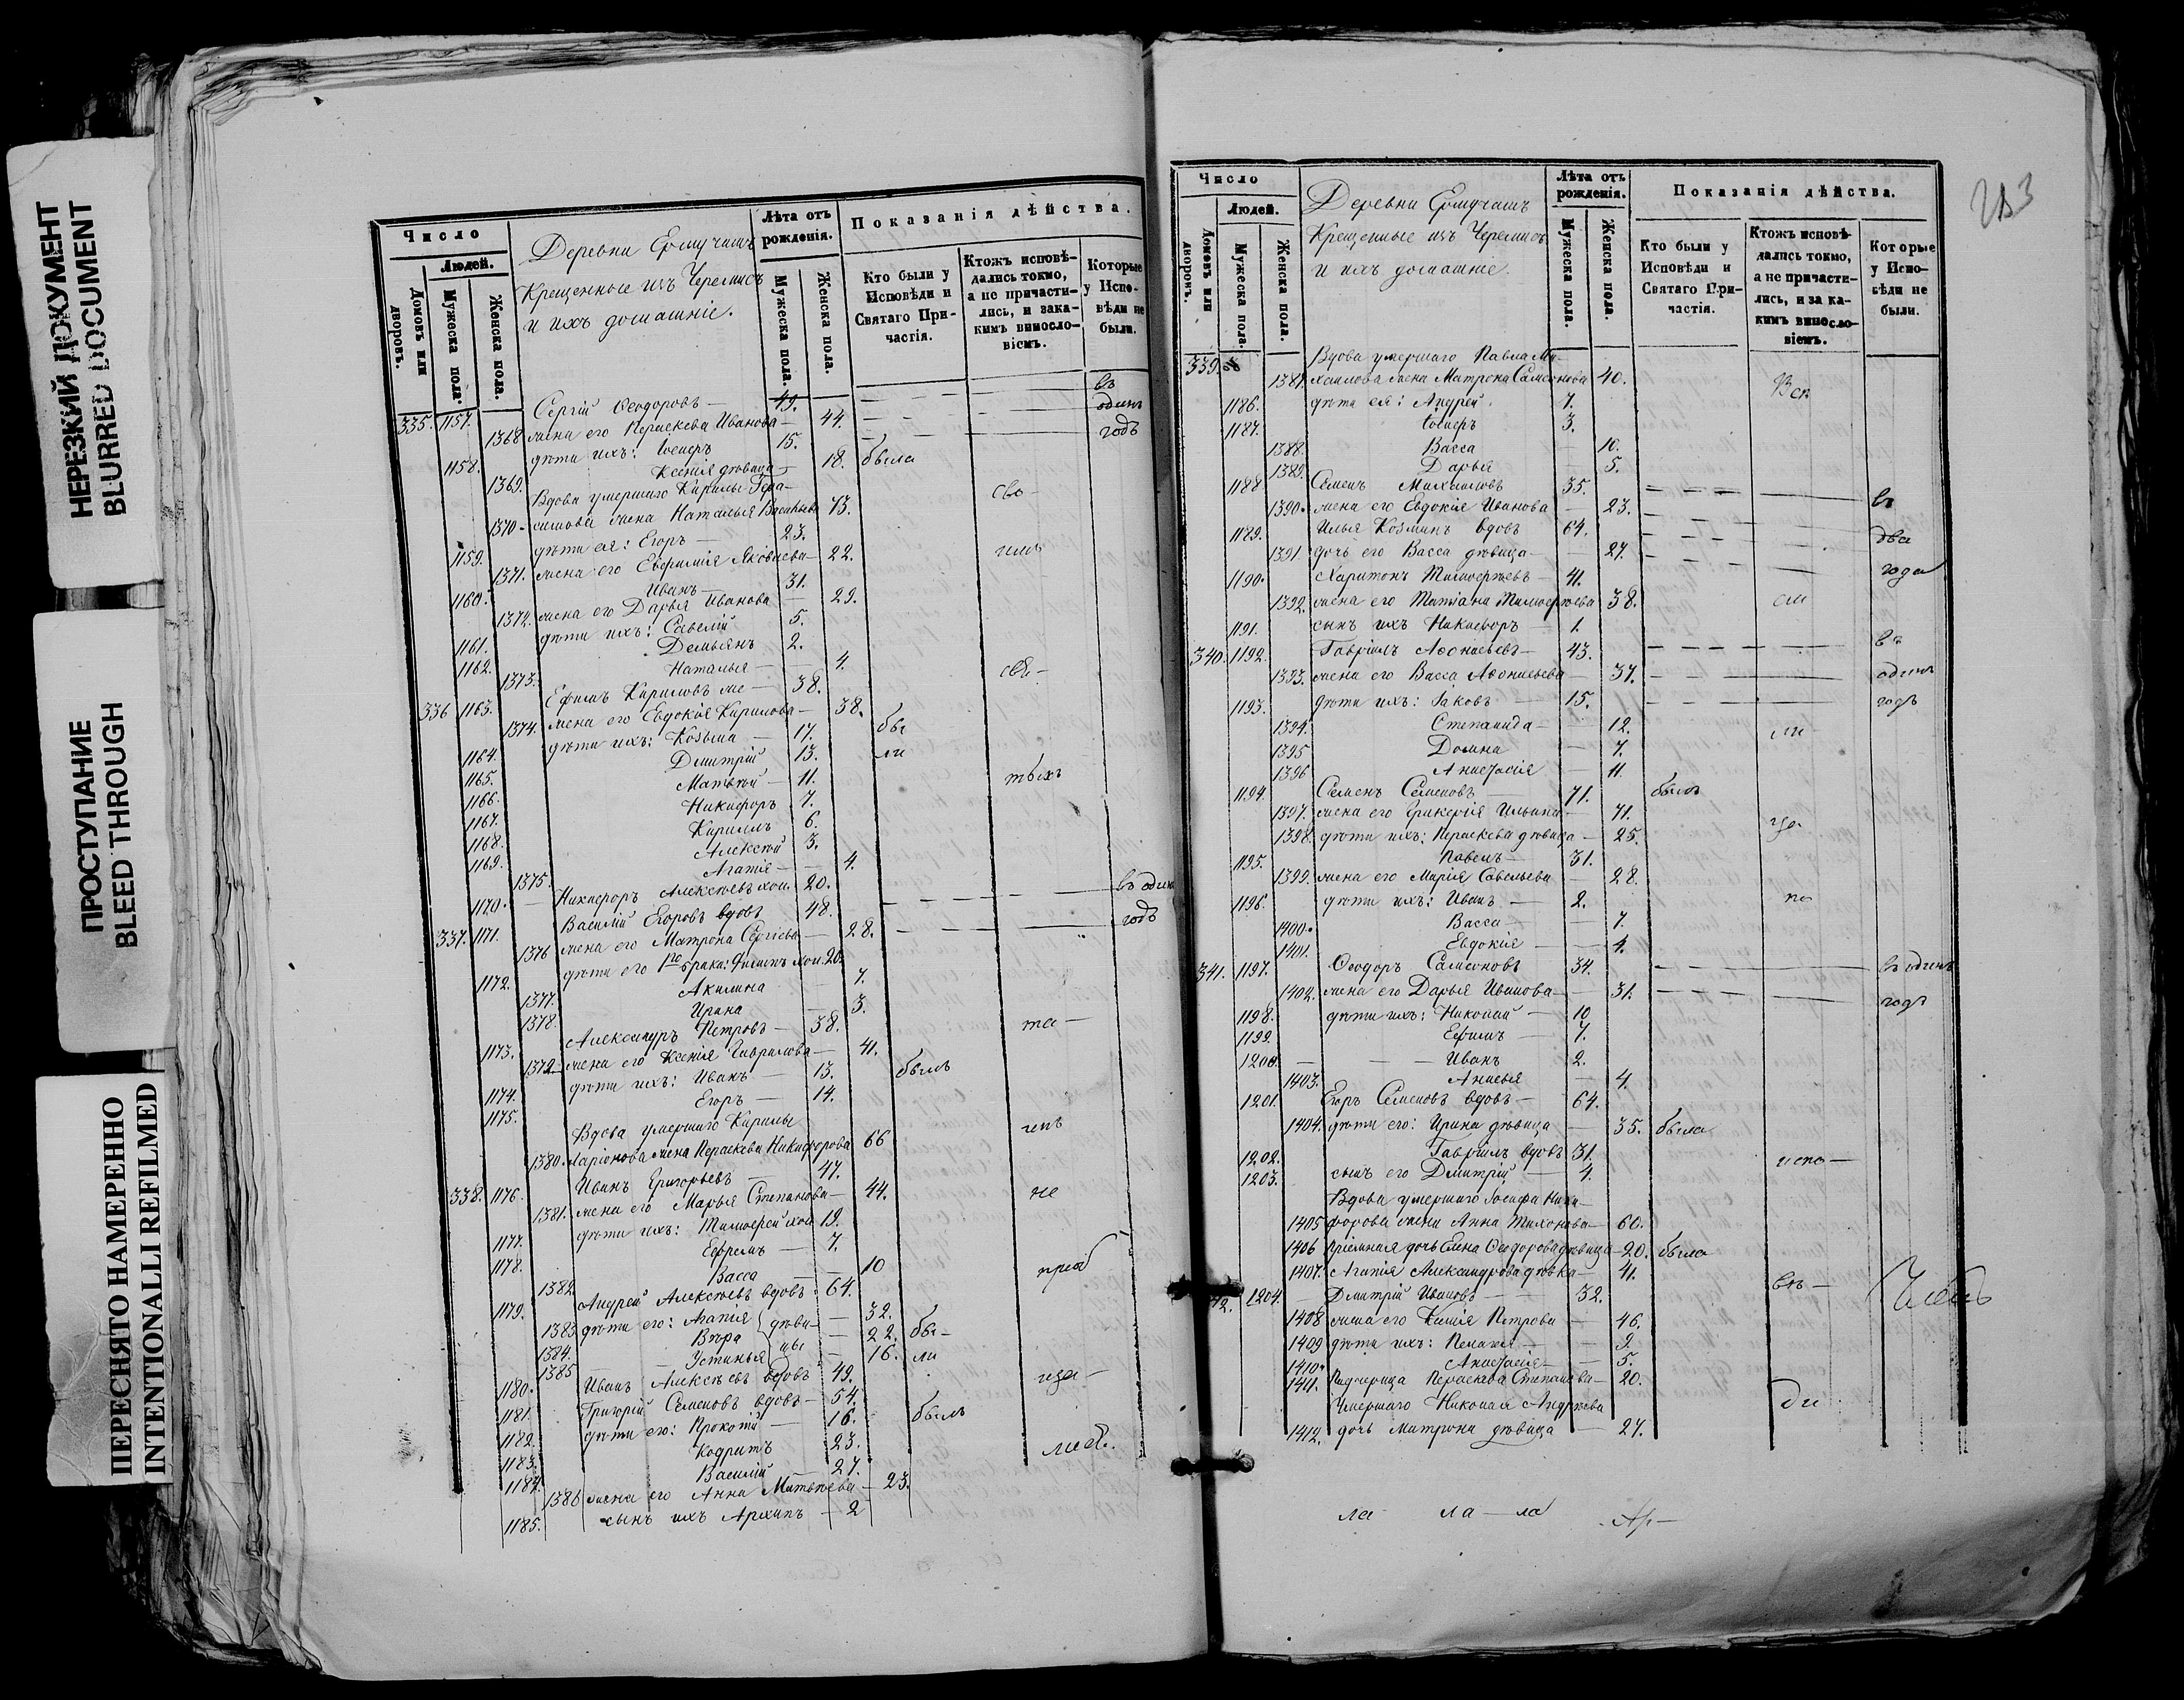 НЕРЕЗКИЙ ДОКУМЕНТ
BLURRED DOCUMENT
ПРОСТУПАНИЕ
BLEED THROUGH
ПЕРЕСНЯТО НАМЕРЕННО
INTENTIONALLI REFILMED
Число
Людей.
Домовъ или дворовъ.
Мужеска пола.
Женска пола.
Деревни Ермучашъ
Крещенные изъ Черемисъ
и ихъ домашніе.
Лѣта отъ рожденія.
Мужеска пола.
Женска пола.
Показанія дѣйства.
Кто были у Исповѣди и Святаго Причастія.
Ктожъ исповѣдались токмо, а не причастились, и закакимъ винословіемъ.
Которые у Исповѣди не были.
335. 1157. Сергій Ѳеодоровъ — 49. въ
1368 жена его Параскева Иванова — 44. одинъ
1158. дѣти ихъ: Іосифъ 15. годъ
1369. Ксенія дѣвица — 18. была
Вдова умершаго Кирилы Гера-
1370. симова жена Наталья Васильева 73.
1159. дѣти ея: Егоръ — 23.
1371. жена его Евфимія Яковлева — 22.
1160. Иванъ — 31.
1372. жена его Дарья Иванова — 29.
1161. дѣти ихъ: Савелій 5.
1162. Демьянъ 2.
1373. Наталья — 4.
336 1163. Ефимъ Кириловъ — 38.
1374. жена его Евдокія Кирилова — 38.
1164. дѣти ихъ: Козьма — 17. бы
1165. Дмитрій 13. ли
1166. Матвѣй — 11.
1167. Никифоръ 7.
1168. Кирилъ 6.
1169. Алексѣй 3.
1375. Агапія — 4.
1170. Никифоръ Алексѣевъ хол. 20. въ один
337. 1171. Василій Егоровъ вдовъ 48. годъ
1376 жена его Матрона Сергіева — 28.
1172. дѣти его 1го брака: Филипъ хол. 20.
1377. Акилина 7.
1378. Ирина — 3.
1173. Александръ Петровъ — 38.
1379 жена его Ксенія Гаврилова — 41.
1174. дѣти ихъ: Иванъ — 13. былъ
1175. Егоръ — 14.
Вдова умершаго Кирилы
1380. Ларіонова жена Параскева Никифорова 66
338. 1176. Иванъ Григорьевъ — 47.
1381. жена его Марья Степанова — 44. не
1177. дѣти ихъ: Тимофей хол 19.
1178. Ефремъ — 7.
1382 Васса — 10
1179. Андрей Алексѣевъ вдовъ 64.
1383 дѣти его: Агапія дѣви- 32.
1384. Вѣра цы 22. бы-
1385 Устинья 16. ли
1180. Иванъ Алексѣевъ вдовъ 49.
1181. Григорій Семеновъ вдовъ — 54.
1182. дѣти его: Прокопій — 16. былъ
1183. Кодратъ 23.
1184. Василій — 27.
1386 жена его Анна Матвѣева — 23.
1185. сынъ ихъ Архипъ — 2
Число
Людей.
Домовъ или дворовъ.
Мужеска пола.
Женска пола.
Деревни Ермучашъ
Крещенные изъ Черемисъ
и ихъ домашніе.
Лѣта отъ рожденія.
Мужеска пола.
Женска пола.
Показанія дѣйства.
Кто были у Исповѣди и Святаго Причастія.
Ктожъ исповѣдались токмо, а не причастились, и за какимъ винословіемъ.
Которые у Исповѣди не были.
339. Вдова умершаго Павла Ми-
1387. хаилова жена Матрона Самсонова 40.
1186. дѣти ея: Андрей. 7.
1187. Іосифъ 3.
1388. Васса — 10.
1389. Дарья 5.
1188 Семенъ Михаиловъ 35.
1390. жена его Евдокія Иванова — 23. въ
1189. Илья Козминъ вдовъ 64. два
1391. дочь его Васса дѣвица — 27. года
1190. Харитонъ Тимофеевъ — 41.
1392. жена его Татіана Тимофеева 38.
1191. сынъ ихъ Никифоръ — 1.
340. 1192. Гавріилъ Аѳонасьевъ — 43. въ
1393. жена его Васса Аѳонасьева — 37. одинъ
1193. дѣти ихъ: Іаковъ — 15. годъ
1394. Степанида — 12. ли
1395 Домна — 7.
1396 Анастасія — 11.
1194. Семенъ Семеновъ — 71. былъ
1397. жена его Гликерія Ильина — 71.
1398. дѣти ихъ: Параскева дѣвица — 25.
1195. Павелъ — 31.
1399. жена его Марія Савельева — 28.
1196. дѣти ихъ: Иванъ — 2. по
1400. Васса — 7.
1401. Евдокія — 4.
341. 1197. Ѳеодоръ Самсоновъ 34. въ одинъ
1402. жена его Дарья Иванова — 31. годъ
1198. дѣти ихъ: Николай — 10
1199. Ефимъ — 7.
1200. Иванъ 2.
1403. Анисья — 4.
1201. Егоръ Семеновъ вдовъ — 64.
1404. дѣти его: Ирина дѣвица — 35. была
1202. Гавріилъ вдовъ 31.
1203. сынъ его Дмитрій — 4. испо—
Вдова умершаго Іосифа Ники-
1405 форова жена Анна Тихонова — 60.
1406 Пріемная дочь Елена Ѳеодорова дѣвица — 20. была
1407. Агапія Александрова дѣвка — 41.
42. 1204. Дмитрій Ивановъ — 32.
1408 жена его Ксенія Петрова — 46.
1409 дѣти ихъ: Пелагея — 9.
1410. Анастасія — 5.
1411. Падчерица Параскева Степанова — 20.
Умершаго Николая Андреева
1412. дочь Матрона дѣвица — 27.
ла ла — ла